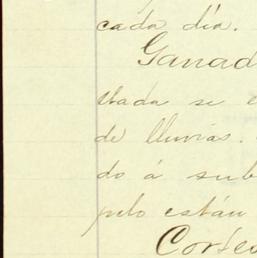 cada día.
Ganad
tada se
de lluvias.
do á sub
pelo están
Cortes